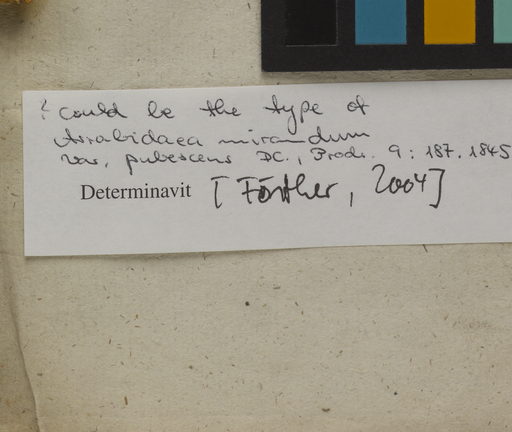 ? could be the type of
Arrabidaea mirandum
var. pubescens DC., Prodr. 9: 187. 1845
Determinavit [Förther, 2004]